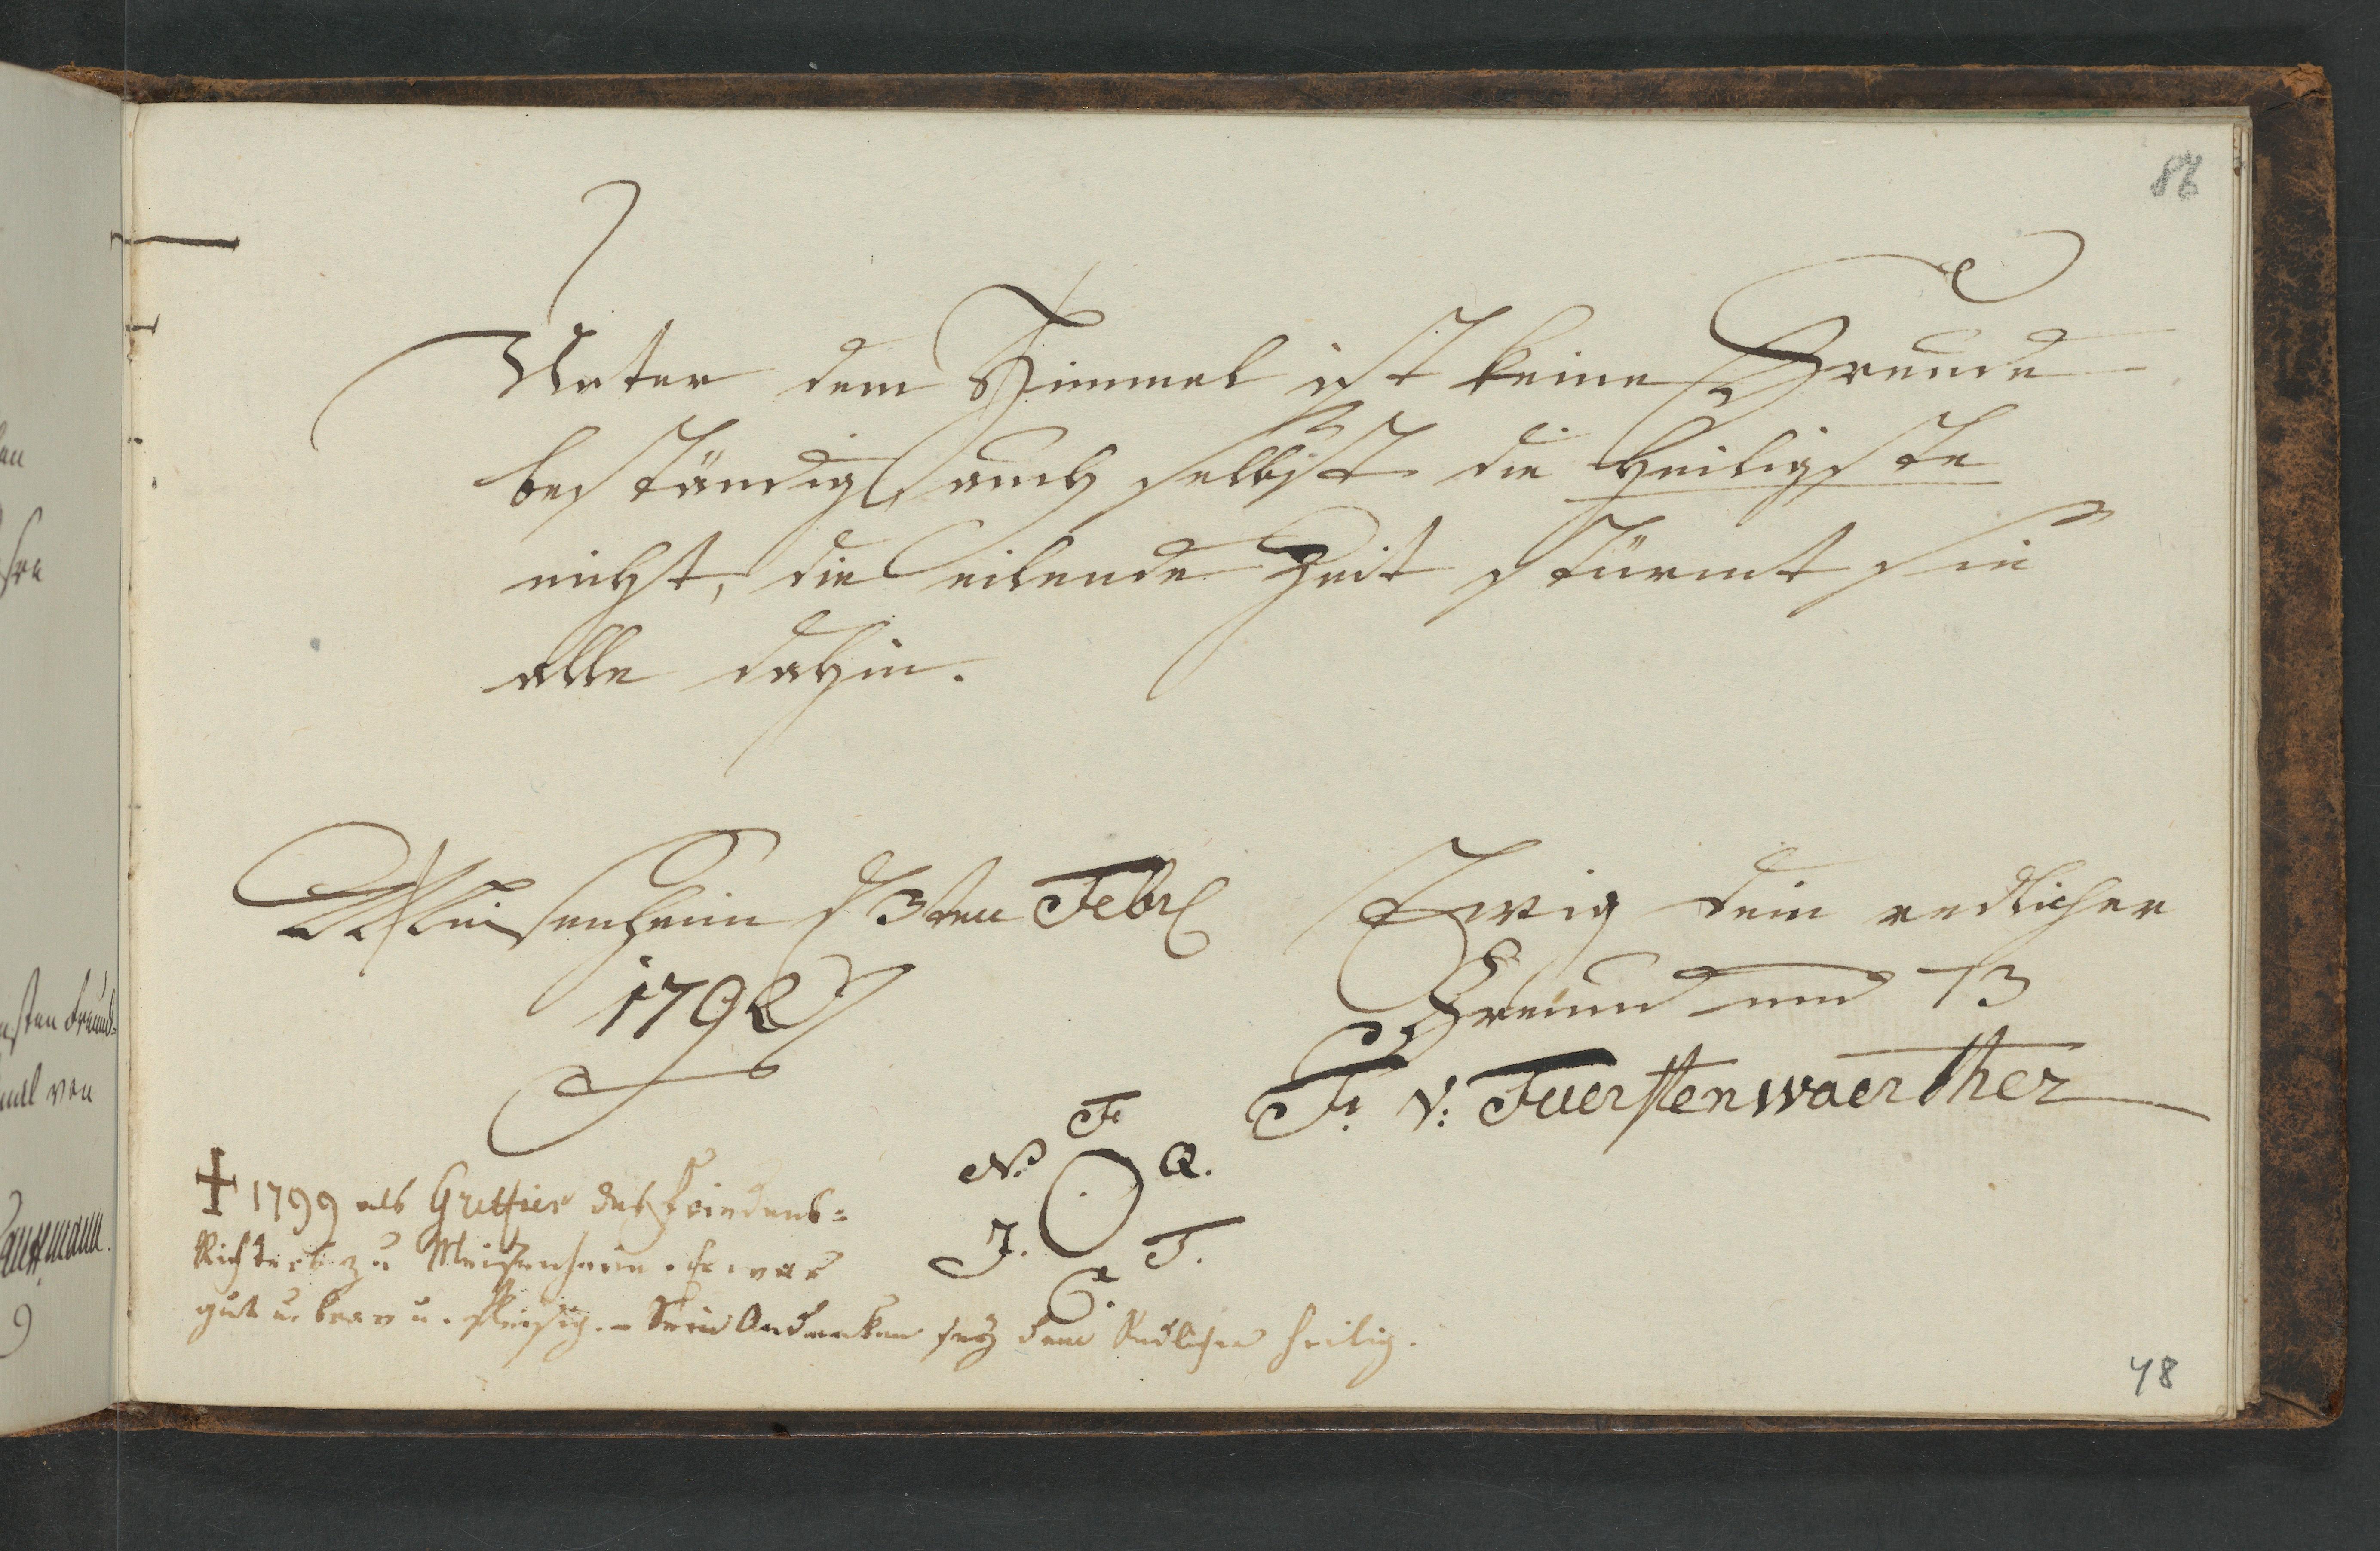 86
Unter dem Himmel ist keine Freude
beständig, auch selbst die heiligste
nicht, die eilende Zeit stürmt sie
alle dahin.
Meisenheim d 3ten Febr
1792
Ewig dein redlicher
Freund und
F. v: Fuerstenwaerther
F
N. Q.
J. T.
C.
✝ 1799 als Greffier des Friedens-
Richters zu Meisenheim. Er war
gut u. brav u. fleisig. – Sein Andenken sey dem Redlichen heilig.
48